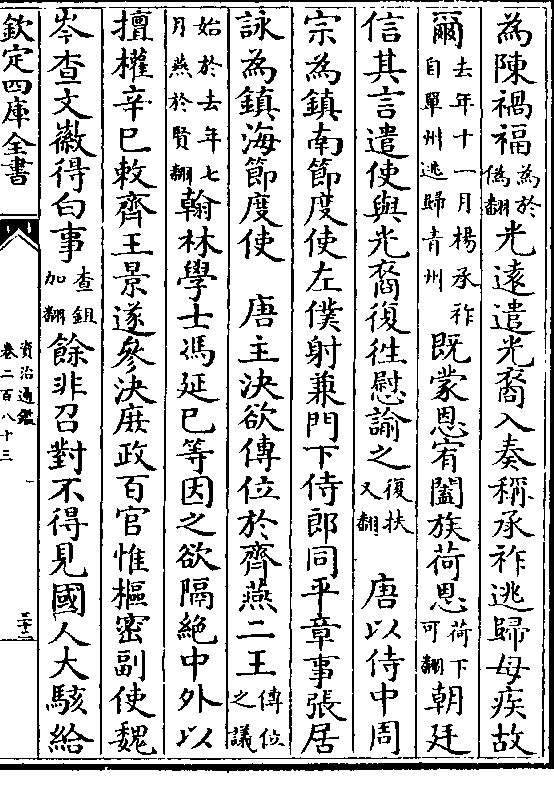 為陳禍福為於偽翻光遠遣光裔入奏稱承祚逃歸母疾故
爾去年十一月楊承祚自單州逃歸青州既蒙恩宥闔族荷恩荷下可翻朝廷
信其言遣使與光裔復往慰諭之復扶又翻　唐以侍中周
宗為鎮南節度使左僕射兼門下侍郎同平章事張居
詠為鎮海節度使　唐主決欲傳位於齊燕二王傳位之議
始於去年七月燕於賢翻翰林學士馮延巳等因之欲隔絶中外以
擅權辛巳敕齊王景遂參決庶政百官惟樞密副使魏
岑查文徽得白事查鉏加翻餘非召對不得見國人大駭給
欽定四庫全書
資治通鑑
卷二百八十三
三十二